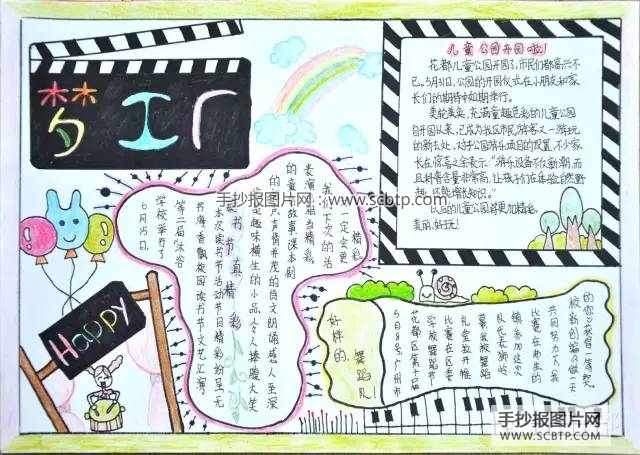 梦工厂
儿童公园开园啦！
花都儿童公园开园了，市民们都高兴不
已。5月31日，公园的开园仪式在小朋友和家
长们的期待中如期举行。
美轮美奂、充满童趣色彩的儿童公园
自开园以来，已成为我区市民、游客又一游玩
的新去处，对于公园游乐项目的设置，不少家
长在惊奇之余表示："游乐设备不仅新潮，而
且科普含量非常高，让孩子们在体验自然野
趣，还能增长知识。"
以后的儿童公园将更加精彩、
美丽、好玩！
手抄报图片网：www.scbtp.com
读书节真精彩
6月15日，
学校举行了
第二届沐浴
书海，香飘校园读书节文艺汇演。
本次读书节活动节目精彩纷呈，无
论是趣味横生的小品，令人捧腹大笑
声情并茂的诗文朗诵感人至深
的童话故事、课本剧
表演都相当精彩
我们下次的活
一定会更
精彩
Happy
好样的，
舞蹈队！
5月8号，广州市
花都区第十届
学校舞蹈节
比赛在区委
礼堂拉开帷
幕。我校舞蹈
队代表狮岭
镇参加这次
比赛，在师生的
共同努力下，我
校新创编的《做一天
的你》获得一等奖。
手抄报图片网
WWW.SCBTP.COM